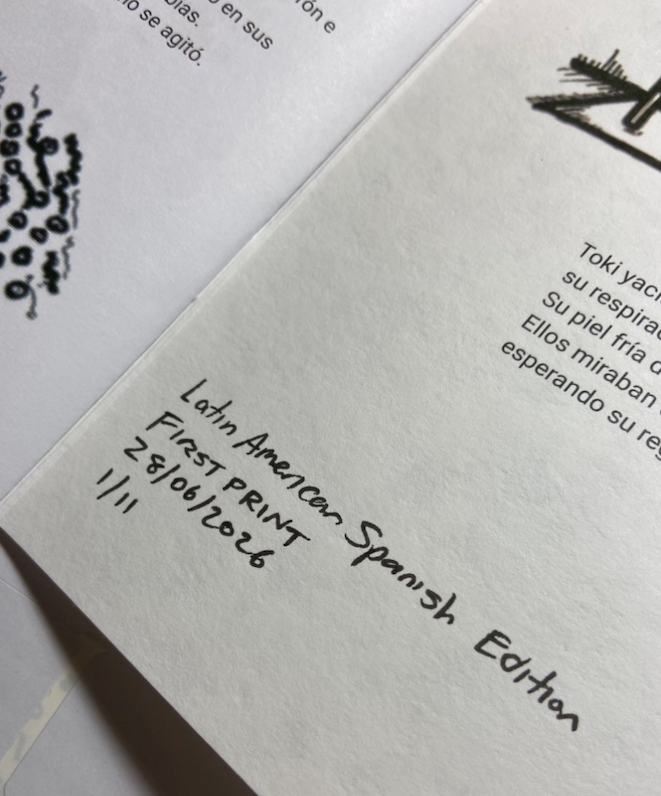 ón e
en sus
bias.
no se agitó.
Toki yací
su respirac
Su piel fría d
Ellos miraban
esperando su reg
Latin American Spanish Edition
FIRST PRINT
28/06/2026
1/11